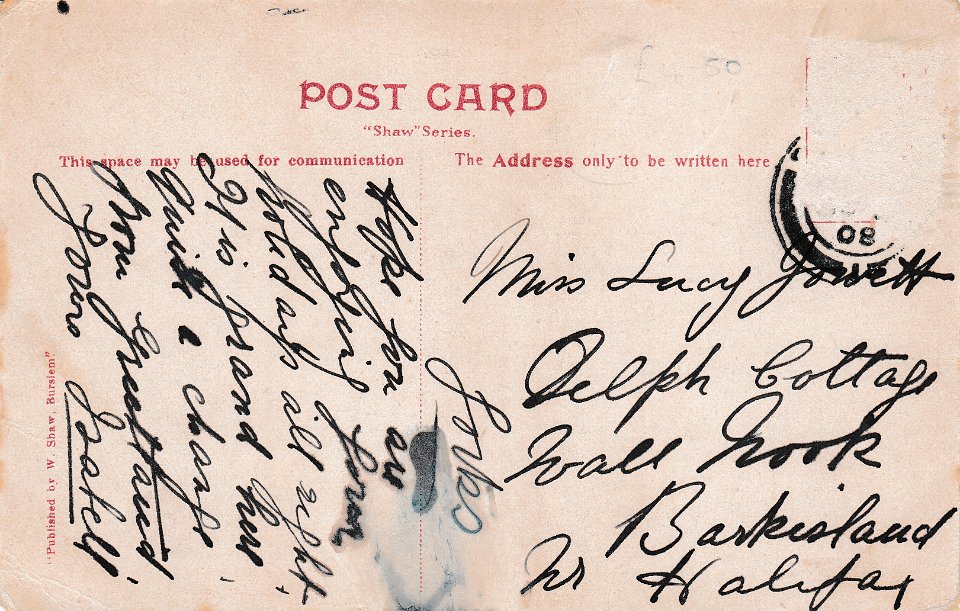 £4.50
POST CARD
"Shaw" Series.
This space may be used for communication
The Address only to be written here
08
Hope you are
enjoying your
holidays all right
It is grand here
Quite a change
from Greetland
Yours Isabell
Yorks
Miss Lucy Jowett
Delph Cottage
Wall Nook
Barkisland
Nr Halifax
"Published by W. Shaw, Burslem"